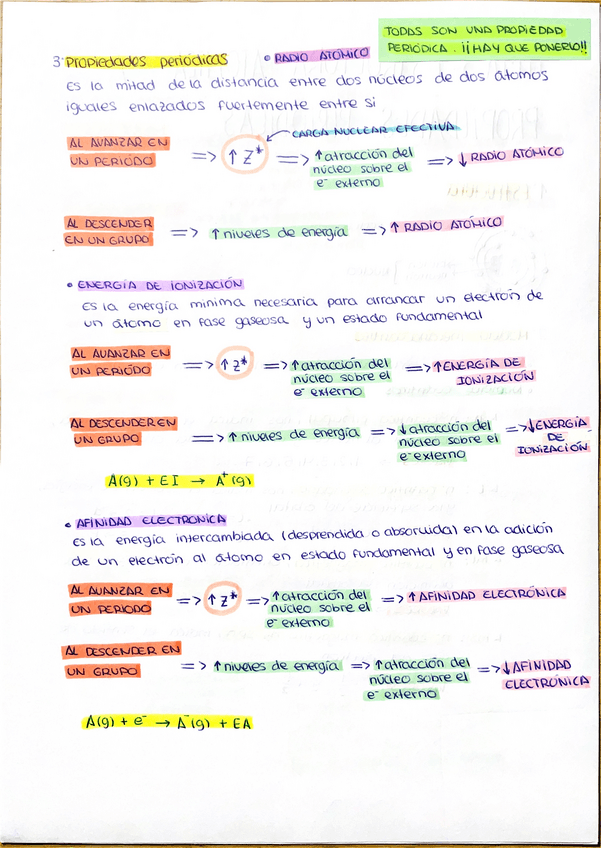 TODAS SON UNA PROPIEDAD
PERIÓDICA. ¡¡HAY QUE PONERLO!!
3. Propiedades periódicas • RADIO ATÓMICO
Es la mitad de la distancia entre dos núcleos de dos átomos
iguales enlazados fuertemente entre si
CARGA NUCLEAR EFECTIVA
AL AVANZAR EN
UN PERIODO => ↑ Z* => ↑ atracción del
núcleo sobre el
e⁻ externo => ↓ RADIO ATÓMICO
AL DESCENDER
EN UN GRUPO => ↑ niveles de energía => ↑ RADIO ATÓMICO
• ENERGÍA DE IONIZACIÓN
Es la energía mínima necesaria para arrancar un electrón de
un átomo en fase gaseosa y un estado fundamental
AL AVANZAR EN
UN PERIÓDO => ↑ Z* => ↑ atracción del
núcleo sobre el
e⁻ externo => ↑ ENERGÍA DE
IONIZACIÓN
AL DESCENDER EN
UN GRUPO => ↑ niveles de energía => ↓ atracción del
núcleo sobre el
e⁻ externo => ↓ ENERGÍA
DE
IONIZACIÓN
A(g) + EI → A⁺(g)
• AFINIDAD ELECTRONICA
Es la energía intercambiada (desprendida o absorvida) en la adición
de un electrón al átomo en estado fundamental y en fase gaseosa
AL AVANZAR EN
UN PERIODO => ↑ Z* => ↑ atracción del
núcleo sobre el
e⁻ externo => ↑ AFINIDAD ELECTRÓNICA
AL DESCENDER EN
UN GRUPO => ↑ niveles de energía => ↑ atracción del
núcleo sobre el
e⁻ externo => ↓ AFINIDAD
ELECTRÓNICA
A(g) + e⁻ → A⁻(g) + EA